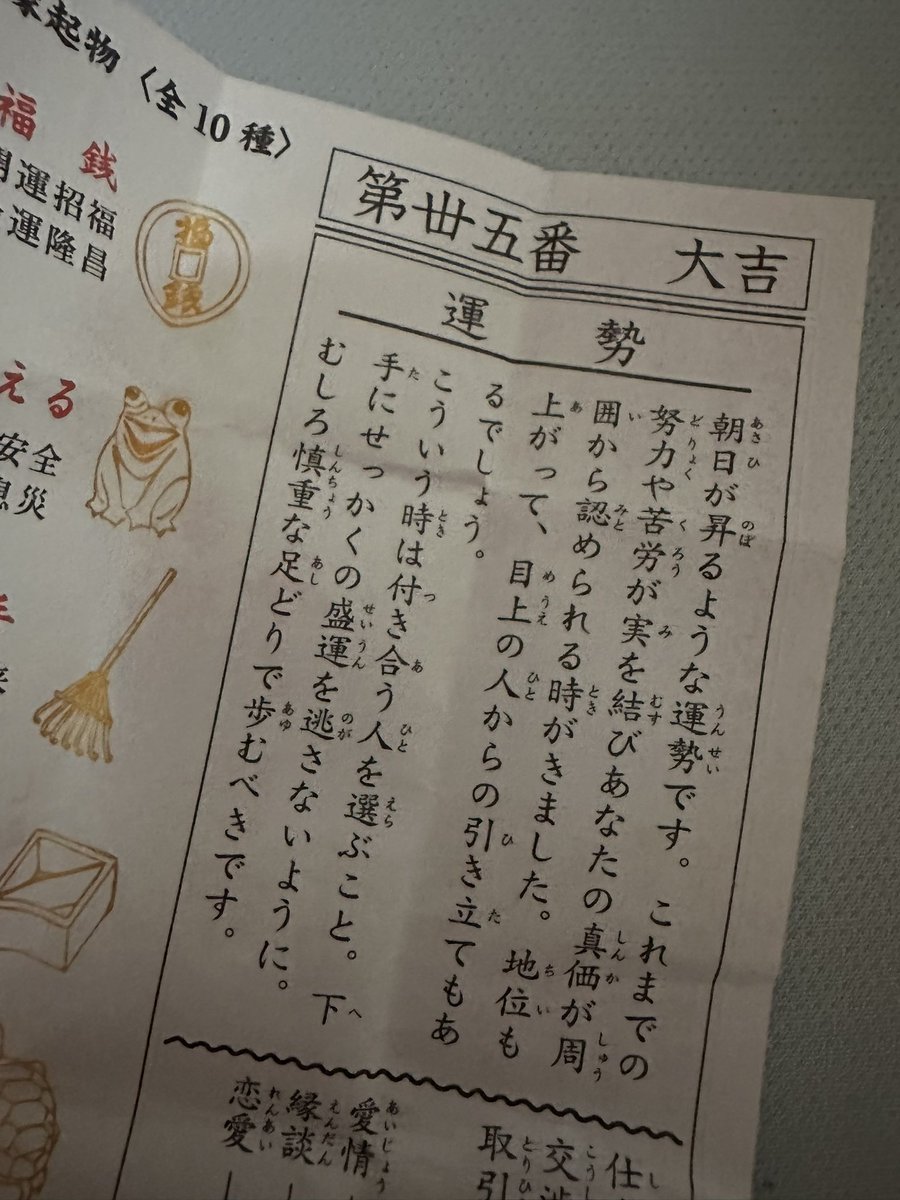 起物〈全10種〉
福銭
開運招福
運隆昌
福銭
える
安全
息災
第丗五番　大吉
運勢
朝日が昇るような運勢です。これまでの
努力や苦労が実を結びあなたの真価が周
囲から認められる時がきました。地位も
上がって、目上の人からの引き立てもあ
るでしょう。
こういう時は付き合う人を選ぶこと。下
手にせっかくの盛運を逃さないように。
むしろ慎重な足どりで歩むべきです。
仕
交渉
取引
愛情
縁談
恋愛